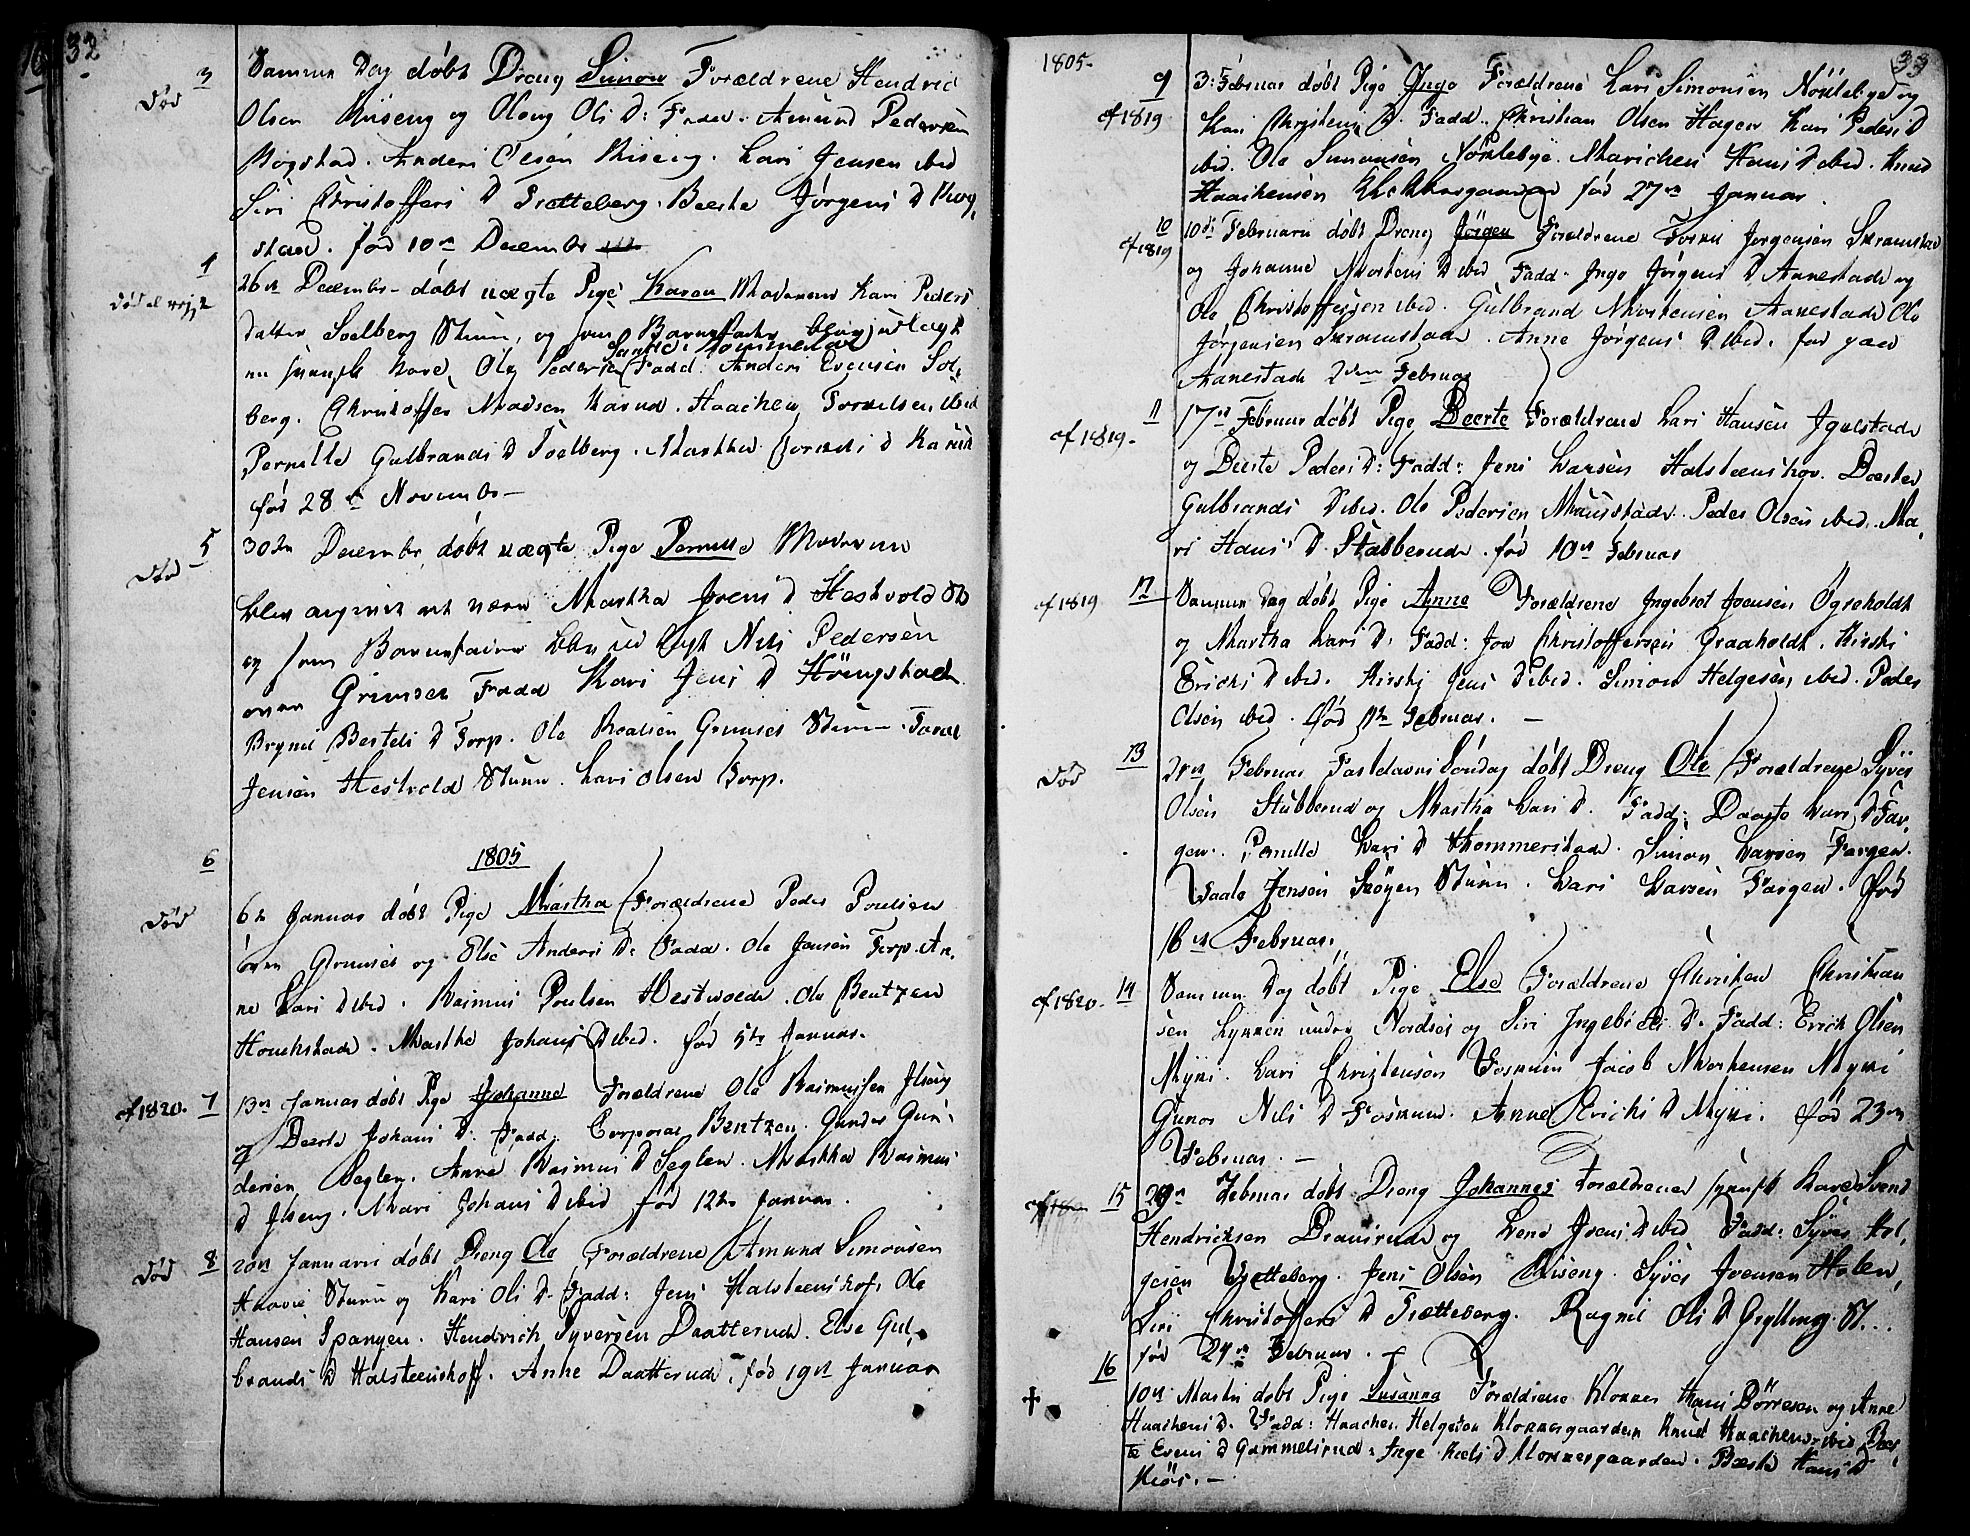 32
3
død
Samme Dag døbt Dreng Simon Forældrene Hendric
Olsen Riiseng og Oloug Ols D: Fadd. Amund Pedersen
Rogstad. Anders Olsen Riiseng. Lars Jensen ibd
Siri Christoffers D Trætteberg. Beerte Jørgens D Rog,
stad. fød 10de December
4
26de Decembr. døbt uægte Pige Karen Moderen Kari Peders
datter Soelberg Stuen, og som Barnefader blev udlagt
en svensk Karl, Ole Pedersen Fadd. Anders Evensen Sol,
berg. Christoffer Madsen Karud. Haachen Torkelsen ibid
Pernille Gulbrands D Soelberg. Martha Joens D Karud
fød 28de Novembr
5
død
30te Decembr. døbt uægte Pige Pernille Moderen
blev angivet at være Martha Joens D Hestvold St
og som Barnefader blev udlagt Nils Pedersen
øvre Grimset Fadd Kari Jens D Høingstad
Brynil Bertels D Torp. Ole Grimset Stuen. Tarald
Jensen Hestvold Stuen. Lars Olsen Torp.
1805
6
død
6te Januar døbt Pige Martha Forældrene Peder Poulsen
øvre Grimset og Else Anders D: Fadd. Ole Jansen Torp. An,
ne Lars D ibid. Rasmus Poulsen Hestvolde. Ole Bentzen
Houchstad. Marthe Johans D ibid. fød 5te Januar.
cf 1820. 7
13de Januar døbt Pige Johanne Forældrene Ole Rasmussen Ilseng
og Deerte Johans D: Fadd. Corporal Bentzen. Gunder Gun,
dersen Seglen. Anne Rasmus D Seglen. Martha Rasmus
D Ilseng. Mari Johans D ibid fød 12te Januar.
død 8
20de Januari døbt Dreng Ole Forældrene Amund Simonsen
Stuen og Kari Ols D. Fadd: Jens Halsteenshof. Ole
Hansen Spangen. Hendrich Syversen Daatterud. Else Gul,
brands D Halsteenshoff. Anne Daatterud. fød 19de Januar
1805.
33
9
cf 1819
3: Februar døbt Pige Inge Forældrene Lars Simonsen Nørlebye og
Kari Christens D. Fadd. Christian Olsen Hagen Kari Peders D
ibid. Ole Simonsen Nørlebye. Marichen Hans D ibid. Knud
Haachensen Klokkergaarden fød 27de Januar.
10
cf 1819
10de Februarii døbt Dreng Jörgen Forældrene Jörgensen Skramstad
og Johanne Mortens D ibid Fadd. Inge Jörgens D Aanestad og
Ole Christoffersen ibid. Gulbrand Mortensen Aanestad Ole
Jörgensen Skramstad. Anne Jörgens D ibid. fød paa
Aanestad 2den Februar
11
cf 1819.
17de Februar døbt Pige Beerte Forældrene Lars Hansen Igelstad
og Berte Peders D: Fadd: Jens Larsen Halsteenshov. Dorthe
Gulbrands D ibid. Ole Pedersen Mausstad. Peder Olsen ibid. Ma,
ri Hans D. Stubberud. fød 10de Februar
cf 1819 12
Samme Dag døbt Pige Anne Forældrene Ingebret Joensen Ögreholdt
og Martha Lars D. Fadd: Joe Christoffersen Graaholdt. Kirsti
Erichs D ibid. Kirsti Jens D ibid. Simon Helgesen ibid. Peder
Olsen ibid. Fød Februar.
13
død
Februar Fastelavns Söndag døbt Dreng Ole Forældrene Syver
Olsen Stubberud og Martha Lars D. Fadd: Lars D Far,
gen. Pernille Lars D Hommerstad. Simon Larsen Fargen.
Jensen Skøyen Stuen. Lars Larsen Fargen. fød
16de Februar.
cf 1820. 14
Samme Dag døbt Pige Else Forældrene Christen Christian
sen Lykken under Nordset og Siri Ingebrets D. Fadd: Erich Olsen
Myri. Lars Christensen Fosnum Jacob Mortensen Myri
Gunor Nils D Fosnum. Anne Erichs D Myri. fød 23de
Februar.
15
Februar døbt Dreng Johannes Forældrene Karl Svend
Hendricksen Dransrud og Lene Joens D ibid Fadd: Syver Hel,
gesen Trætteberg. Jens Olsen Riiseng. Syver Joensen Holen
Siri Christoffers D Trætteberg. Ragnil Ols D Grylling St...
fød 24de Februar.
16
10de Martii døbt Pige Susanna Forældrene Klokker Hans Børresen og Anne
Haachens D. Fadd: Haachen Helgesen Klokkergaarden Knud Haachensen ibid. Ber,
te Evens D Gammelsrud. Inge Niels D Klokkergaarden. Berthe Hans D
Kiøs.